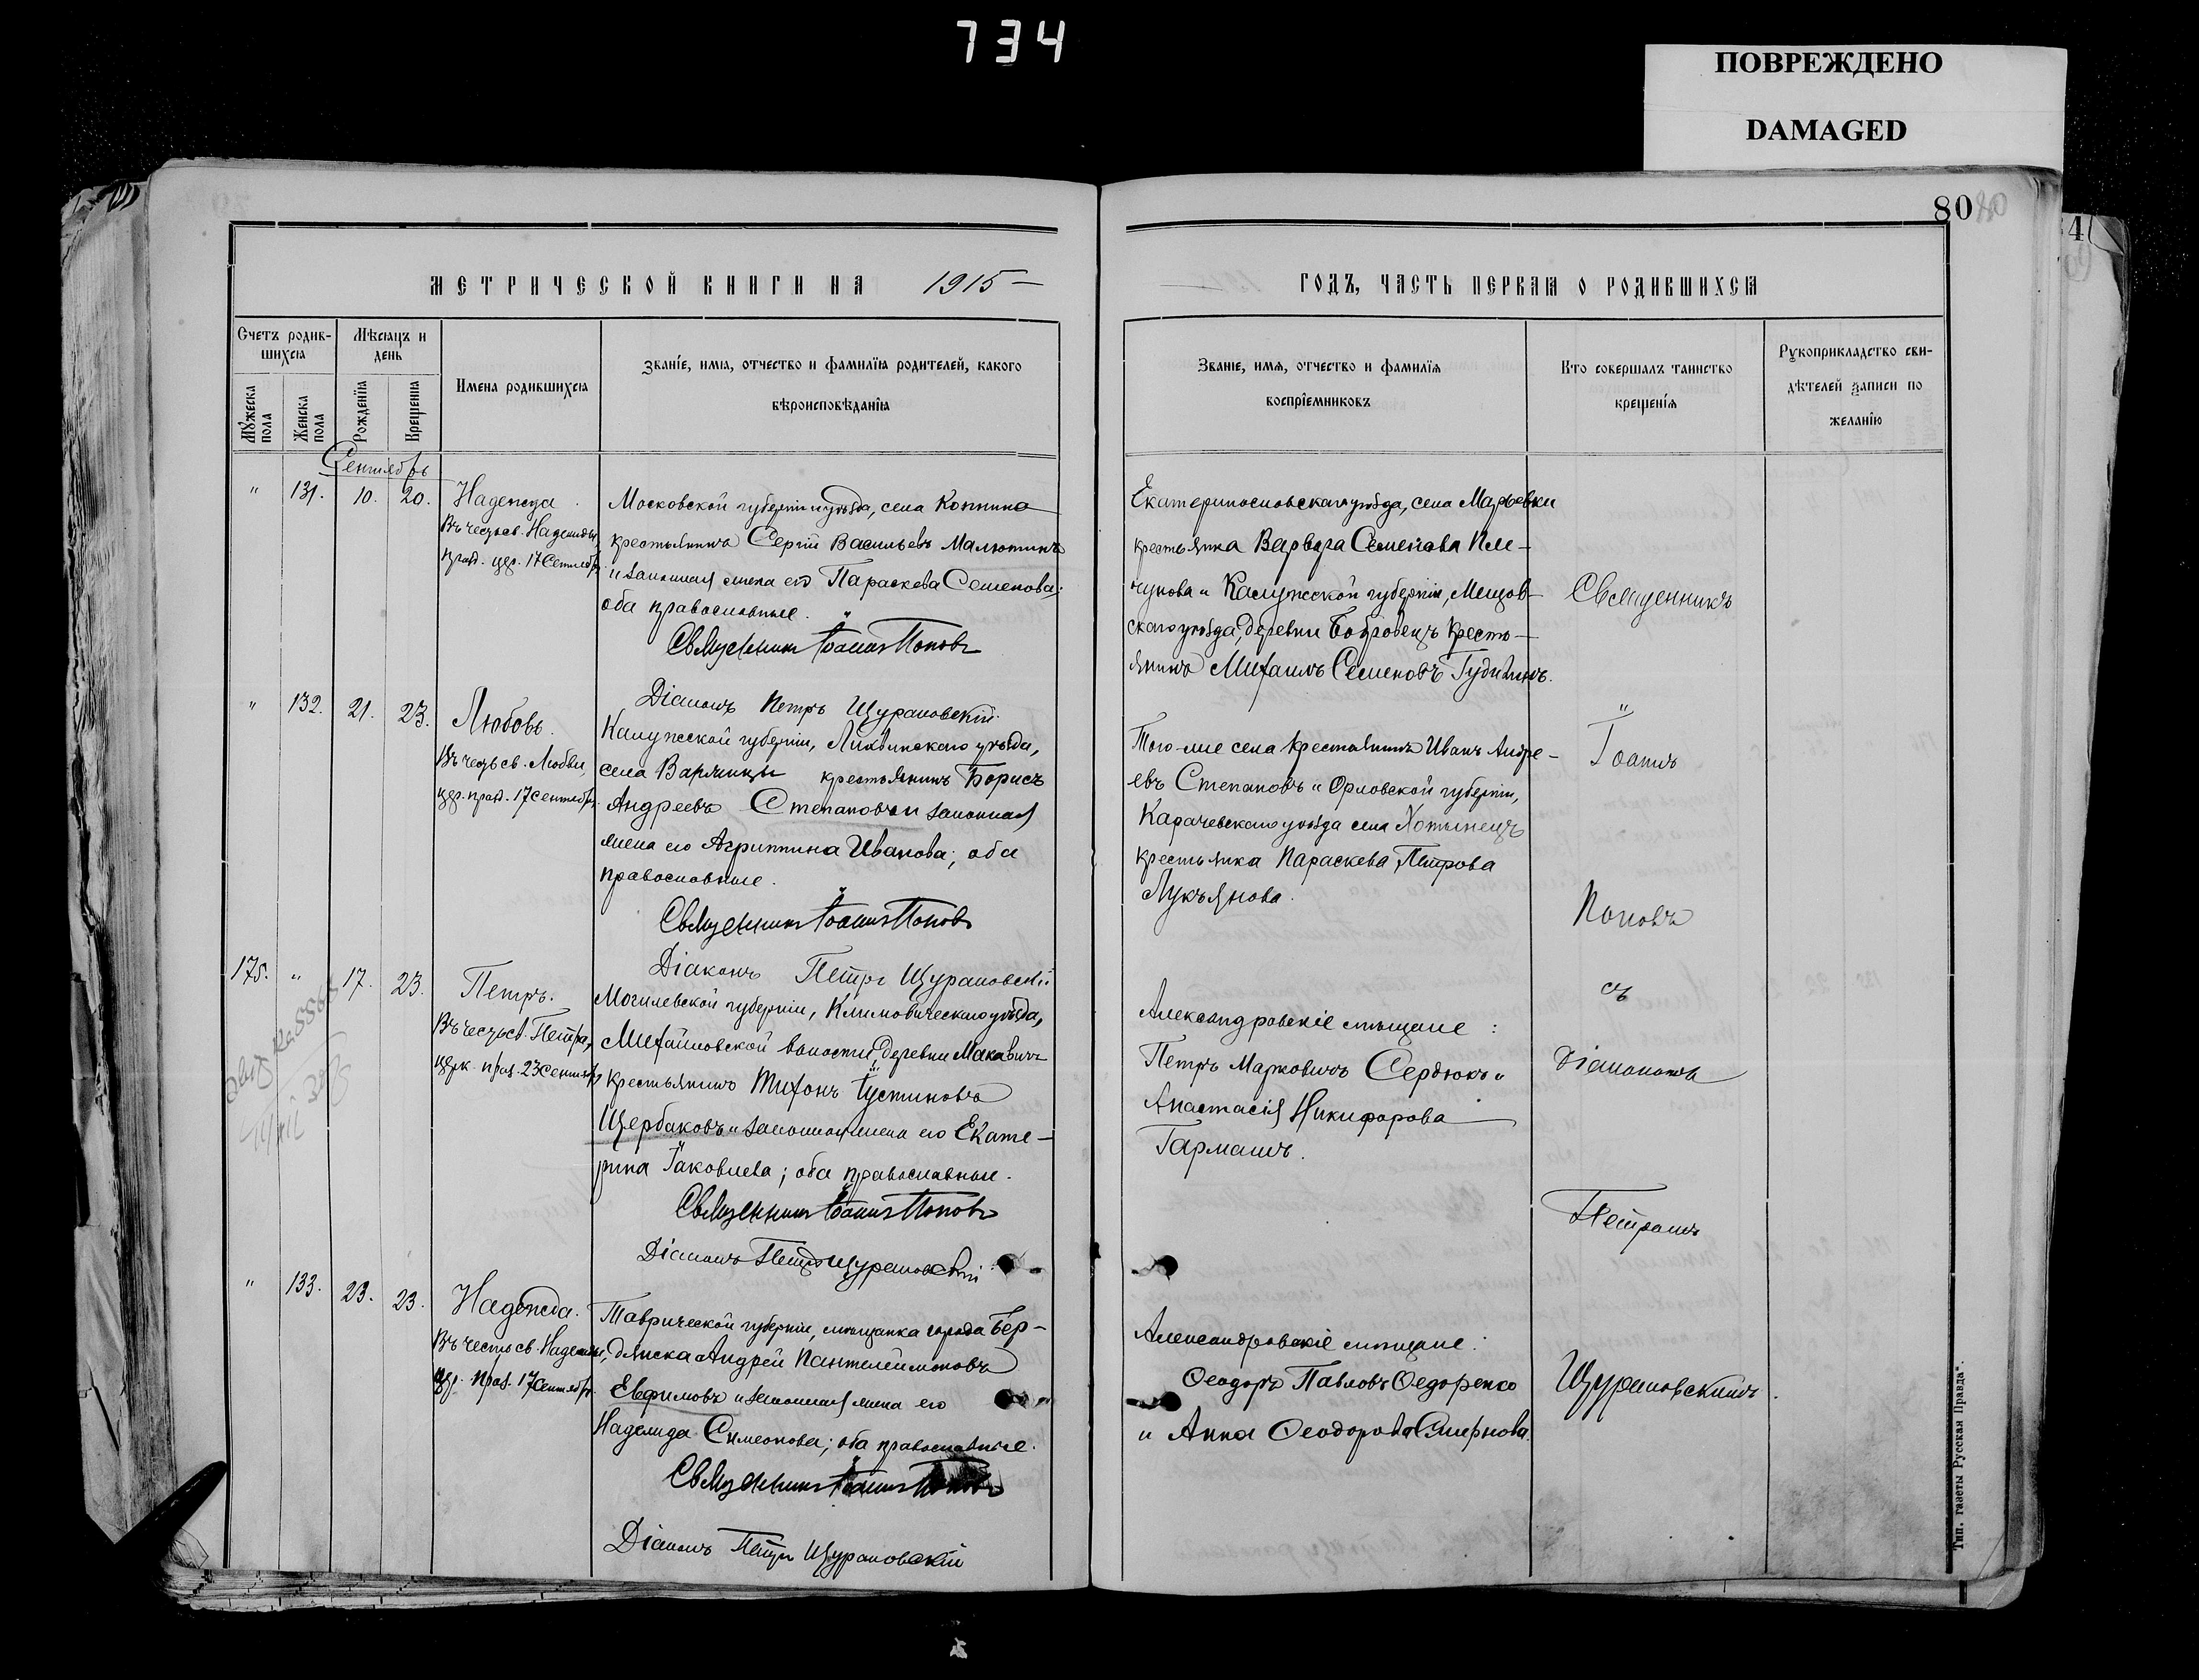 734
ПОВРЕЖДЕНО
DAMAGED
80
4
МЕТРИЧЕСКОЙ КНИГИ НА 1915
Счетъ родив-
шихся
Мѣсяцъ и
день
Мужеска пола
Женска пола
Рожденїя
Крещенїя
Имена родившихся
Званїе, имя, отчество и фамилїя родителей, какого
вѣроисповѣданїя
Сентябрь
" 131. 10. 20.
Надежда.
Въ честь св. Надежды,
праз. цер. 17 Сентябр.
Московской губерніи и уѣзда, села
крестьянинъ Сергій Васильевъ Малютинъ
и законная жена его Параскева Семенова;
оба православные.
Священникъ Іоаннъ Поповъ
Діаконъ Петръ Щурановскій
" 132. 21. 23.
Любовь.
Въ честь св. Любви,
цер. праз. 17 Сентябр.
Калужской губерніи, Лихвинскаго уѣзда,
села Варлинцы крестьянинъ Борисъ
Андреевъ Степановъ и законная
жена его Агриппина Иванова; оба
православные.
Священникъ Іоаннъ Поповъ
Діаконъ Петръ Щурановскій
175. " 17. 23.
Петръ.
Въ честь св. Петра,
церк. праз. 23 Сентябр
Могилевской губерніи, Климовическаго уѣзда,
Михайловской волости, деревни Макавичъ
крестьянинъ Тихонъ Іустиновъ
Щербаковъ и законная жена его Екате-
рина Іаковлева; оба православные.
Священникъ Іоаннъ Поповъ
Діаконъ Петръ Щурановскій
" 133. 23. 23.
Надежда.
Въ честь св. Надежды,
цер. праз. 17 Сентябр.
Таврической губерніи, мѣщанка города Бер-
дянска Андрей Пантелеимоновъ
Евфимовъ и законная жена его
Надежда Симеонова; оба православные.
Священникъ Іоаннъ Поповъ
Діаконъ Петръ Щурановскій
ГОДЪ, ЧАСТЬ ПЕРВАЯ О РОДИВШИХСЯ
Званіе, имя, отчество и фамилїя
воспрїемниковъ
Кто совершалъ таинство
крещенїя
Рукоприкладство сви-
дѣтелей записи по
желанїю
Екатеринославскаго уѣзда, села Марьевки
крестьянка Варвара Семенова Пле-
чунова и Калужской губерніи, Мещов-
скаго уѣзда, деревни Бобровецъ кресть-
янинъ Михаилъ Семеновъ
Того-же села крестьянинъ Иванъ Андре-
евъ Степановъ и Орловской губерніи,
Карачевскаго уѣзда села Хотынецъ
крестьянка Параскева Петрова
Лукъянова.
Александровскіе мѣщане:
Петръ Марковичъ Сердюкъ и
Анастасія Никифорова
Гармашъ.
Александровскіе мѣщане:
Ѳеодоръ Павловъ Ѳедоренко
и Анна Ѳеодорова Смирнова.
Священникъ
Іоаннъ
Поповъ
съ
Діакономъ
Петромъ
Щурановскимъ.
Тип. газеты Русская Правда".